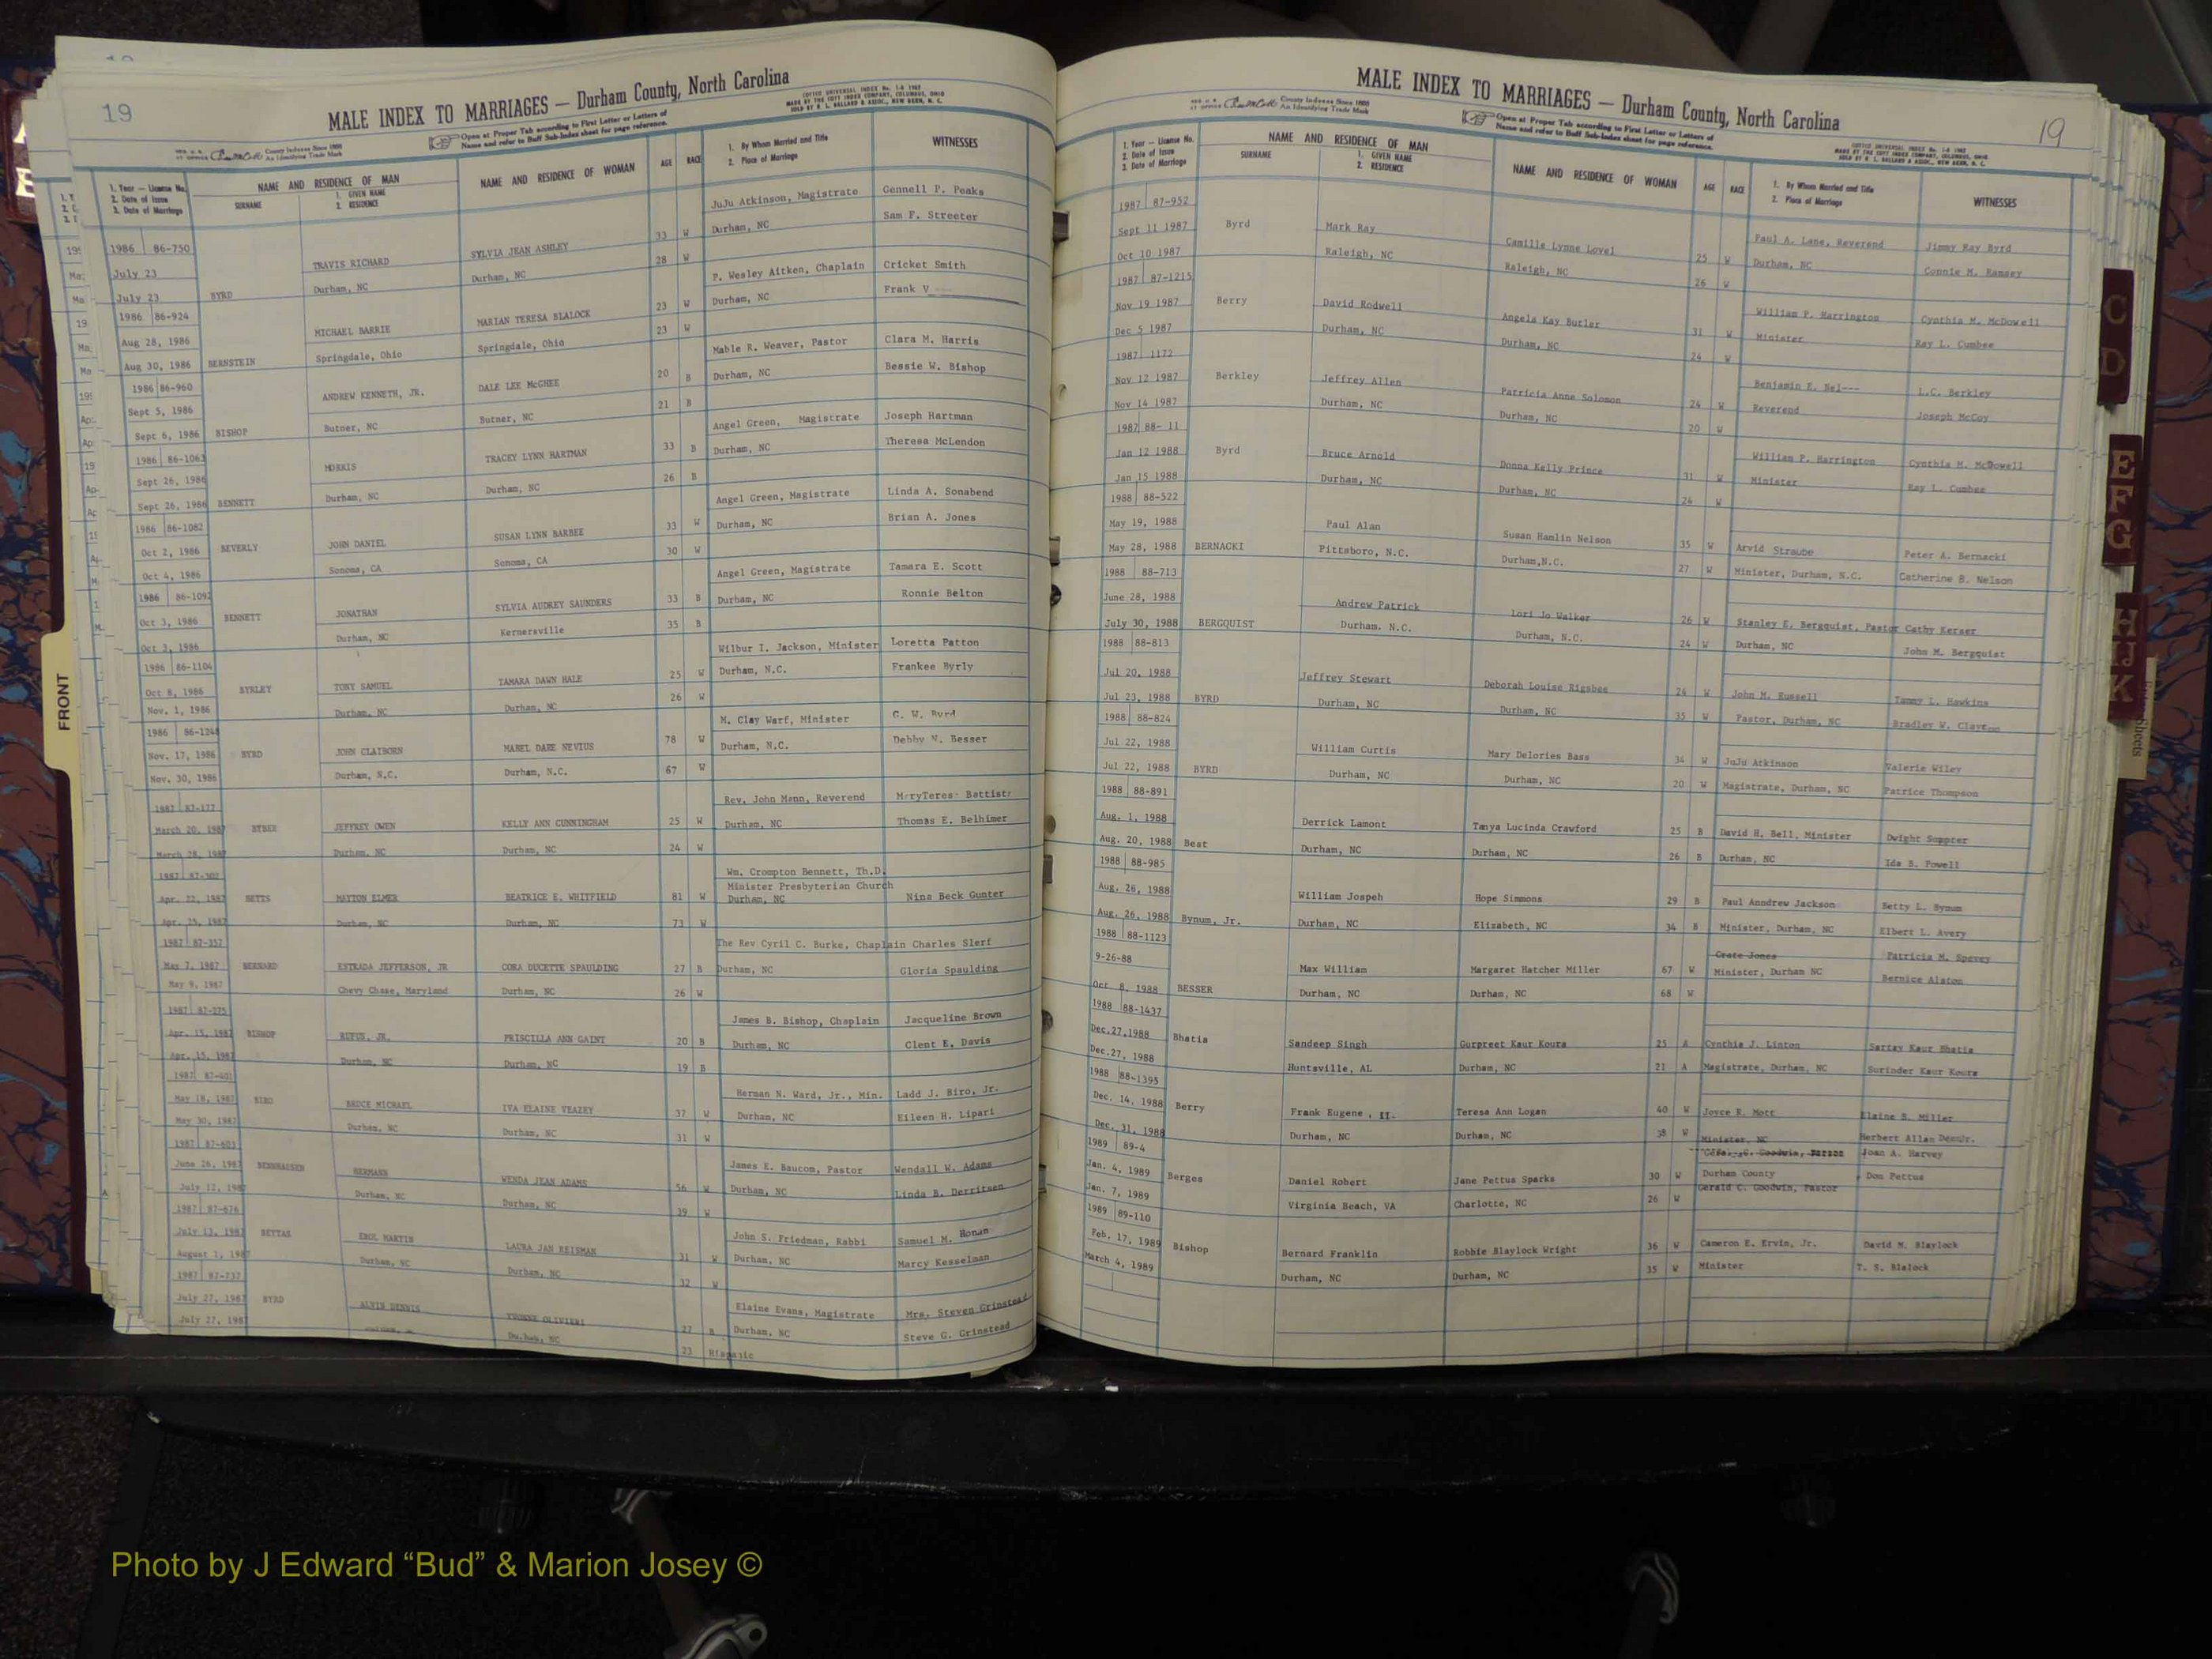 19
MALE INDEX TO MARRIAGES — Durham County, North Carolina
COTTON UNIVERSAL INDEX No. 1-6 1962
MADE BY THE COTT INDEX COMPANY, COLUMBUS, OHIO
SOLD BY R. L. BALLARD & ASSOC., NEW BERN, N. C.
County Indexes Since 1888
An Identifying Trade Mark
Open at Proper Tab according to First Letter or Letters of
Name and refer to Buff Sub-Index sheet for page reference.
1. Year — License No.
2. Date of Issue
3. Date of Marriage
NAME AND RESIDENCE OF MAN
SURNAME
1. GIVEN NAME
2. RESIDENCE
NAME AND RESIDENCE OF WOMAN
AGE
RACE
1. By Whom Married and Title
2. Place of Marriage
WITNESSES
1986 86-750 TRAVIS RICHARD SYLVIA JEAN ASHLEY 33 W JuJu Atkinson, Magistrate Gennell P. Peaks
July 23 Durham, NC Durham, NC 28 W Durham, NC Sam F. Streeter
July 23 BYRD
1986 86-924 MICHAEL BARRIE MARIAN TERESA BLALOCK 23 W P. Wesley Aitken, Chaplain Cricket Smith
Aug 28, 1986 Springdale, Ohio Springdale, Ohio 23 W Durham, NC Frank V
Aug 30, 1986 BERNSTEIN
1986 86-960 ANDREW KENNETH, JR. DALE LEE McGHEE 20 B Mable R. Weaver, Pastor Clara M. Harris
Sept 5, 1986 Butner, NC Butner, NC 21 B Durham, NC Bessie W. Bishop
Sept 6, 1986 BISHOP
1986 86-1063 MORRIS TRACEY LYNN HARTMAN 33 B Angel Green, Magistrate Joseph Hartman
Sept 26, 1986 Durham, NC Durham, NC 26 B Durham, NC Theresa McLendon
Sept 26, 1986 BENNETT
1986 86-1082 JOHN DANIEL SUSAN LYNN BARBEE 33 W Angel Green, Magistrate Linda A. Sonabend
Oct 2, 1986 BEVERLY Sonoma, CA Sonoma, CA 30 W Durham, NC Brian A. Jones
Oct 4, 1986
1986 86-1092 JONATHAN SYLVIA AUDREY SAUNDERS 33 B Angel Green, Magistrate Tamara E. Scott
Oct 3, 1986 BENNETT Durham, NC Kernersville 35 B Durham, NC Ronnie Belton
Oct 3, 1986
1986 86-1104 TONY SAMUEL TAMARA DAWN HALE 25 W Wilbur I. Jackson, Minister Loretta Patton
Oct 8, 1986 BYRLEY Durham, NC Durham, NC 26 W Durham, N.C. Frankee Byrly
Nov. 1, 1986
1986 86-1248 JOHN CLAIBORN MABEL DARE NEVIUS 78 W M. Clay Warf, Minister C. W. Byrd
Nov. 17, 1986 BYRD Durham, N.C. Durham, N.C. 67 W Durham, N.C. Debby N. Besser
Nov. 30, 1986
1987 87-177 JEFFREY OWEN KELLY ANN CUNNINGHAM 25 W Rev. John Menn, Reverend
March 20, 1987 Durham, NC Durham, NC 24 W Durham, NC Thomas E. Belhimer
March 28, 1987
Wm. Crompton Bennett, Th.D.
Minister Presbyterian Church
Apr. 22, 1987 BETTS ELMER BEATRICE E. WHITFIELD 81 W Durham, NC Nina Beck Gunter
Apr. 25, 1987 Durham, NC Durham, NC 73 W
1987 87-357 The Rev Cyril C. Burke, Chaplain Charles Slerf
May 7, 1987 BERNARD ESTRADA JEFFERSON, JR CORA DUCETTE SPAULDING 27 B Durham, NC Gloria Spaulding
May 9, 1987 Chevy Chase, Maryland Durham, NC 26 W
1987 87-275 James B. Bishop, Chaplain Jacqueline Brown
Apr. 15, 1987 BISHOP RUFUS, JR. PRISCILLA ANN GAINT 20 B Durham, NC Clent E. Davis
Apr. 15, 1987 Durham, NC Durham, NC 19 B
1987 87-401 Herman N. Ward, Jr., Min. Ladd J. Biro, Jr.
May 18, 1987 BIRO BRUCE MICHAEL IVA ELAINE VEAZEY 37 W Durham, NC Eileen H. Lipari
May 30, 1987 Durham, NC Durham, NC 31 W
1987 87-603 James E. Baucom, Pastor Wendall W. Adams
June 26, 1987 HERMANN WENDA JEAN ADAMS 56 W Durham, NC Linda B. Derritsen
July 12, 1987 Durham, NC Durham, NC 39 W
1987 87-676 John S. Friedman, Rabbi Samuel M. Honan
July 13, 1987 BEYTAS EROL MARTIN LAURA JAN REISMAN 31 W Durham, NC Marcy Kesselman
August 1, 1987 Durham, NC Durham, NC 32 W
1987 87-737 Elaine Evans, Magistrate Mrs. Steven Grinstead
July 27, 1987 BYRD ALVIN DENNIS YVONNE OLIVIERI 27 B Durham, NC Steve G. Grinstead
July 27, 1987 Durham, NC 23 Hispanic
FRONT
MALE INDEX TO MARRIAGES — Durham County, North Carolina
19
County Indexes Since 1888
An Identifying Trade Mark
Open at Proper Tab according to First Letter or Letters of
Name and refer to Buff Sub-Index sheet for page reference.
1. Year — License No.
2. Date of Issue
3. Date of Marriage
NAME AND RESIDENCE OF MAN
SURNAME
1. GIVEN NAME
2. RESIDENCE
NAME AND RESIDENCE OF WOMAN
AGE
RACE
1. By Whom Married and Title
2. Place of Marriage
WITNESSES
1987 87-952
Sept 11 1987 Byrd Mark Ray Camille Lynne Lovel 25 W Paul A. Lane, Reverend Jimmy Ray Byrd
Oct 10 1987 Raleigh, NC Raleigh, NC 26 W Durham, NC Connie M. Ramsey
1987 87-1215
Nov 19 1987 Berry David Rodwell Angela Kay Butler 31 W William P. Harrington Cynthia M. McDowell
Dec 5 1987 Durham, NC Durham, NC 24 W Minister Ray L. Cumbee
1987 1172
Nov 12 1987 Berkley Jeffrey Allen Patricia Anne Solomon 24 W Benjamin E. Bel--- L.C. Berkley
Nov 14 1987 Durham, NC Durham, NC 20 W Reverend Joseph McCoy
1987 88- 11
Jan 12 1988 Byrd Bruce Arnold Donna Kelly Prince 31 W William P. Harrington Cynthia M. McDowell
Jan 15 1988 Durham, NC Durham, NC 24 W Minister Ray L. Cumbee
1988 88-522
May 19, 1988 Paul Alan Susan Hamlin Nelson 35 W Arvid Straube Peter A. Bernacki
May 28, 1988 BERNACKI Pittsboro, N.C. Durham,N.C. 27 W Minister, Durham, N.C. Catherine B. Nelson
1988 88-713
June 28, 1988 Andrew Patrick Lori Jo Walker 26 W Stanley E. Bergquist, Pastor Cathy Kerser
July 30, 1988 BERGQUIST Durham. N.C. Durham, N.C. 24 W Durham, NC John M. Bergquist
1988 88-813
Jul 20, 1988 Jeffrey Stewart Deborah Louise Rigsbee 24 W John M. Russell Tammy L. Hawkins
Jul 23, 1988 BYRD Durham, NC Durham, NC 35 W Pastor, Durham, NC Bradley W.
1988 88-824
Jul 22, 1988 William Curtis Mary Delories Bass 34 W JuJu Atkinson Valerie Wiley
Jul 22, 1988 BYRD Durham, NC Durham, NC 20 W Magistrate, Durham, NC Patrice Thompson
1988 88-891
Aug. 1, 1988 Derrick Lamont Tanya Lucinda Crawford 25 B David H. Bell, Minister Dwight Sumpter
Aug. 20, 1988 Best Durham, NC Durham, NC 26 B Durham, NC Ida B. Powell
1988 88-985
Aug. 26, 1988 William Jospeh Hope Simmons 29 B Paul Anndrew Jackson Betty L. Bynum
Aug. 26, 1988 Bynum, Jr. Durham, NC Elizabeth, NC 34 B Minister, Durham, NC Elbert L. Avery
1988 88-1123 Crate Jones Patricia M. Spevey
9-26-88 Max William Margaret Hatcher Miller 67 W Minister, Durham NC Bernice Alston
Oct 8, 1988 BESSER Durham, NC Durham, NC 68 W
1988 88-1437
Dec.27,1988 Bhatia Sandeep Singh Gurpreet Kaur Koura 25 A Cynthia J. Linton Sartay Kaur Bhatia
Dec.27, 1988 Huntsville, AL Durham, NC 21 A Magistrate, Durham, NC Surinder Kaur Koura
1988 88-1395
Dec. 14, 1988 Berry Frank Eugene , II. Teresa Ann Logan 40 W Joyce R. Mott Elaine B. Miller
Dec. 31, 1988 Durham, NC Durham, NC 38 W Minister, NC Herbert Allan
1989 89-4 Goodwin, Joan A. Harvey
Jan. 4, 1989 Berges Daniel Robert Jane Pettus Sparks 30 W Durham County Don Pettus
Jan. 7, 1989 Virginia Beach, VA Charlotte, NC 26 W Gerald C. Goodwin, Pastor
1989 89-110
Feb. 17, 1989 Bishop Bernard Franklin Robbie Blaylock Wright 36 W Cameron E. Ervin, Jr. David M. Blaylock
March 4, 1989 Durham, NC Durham, NC 35 W Minister T. S. Blalock
C
D
E
F
G
H
IJ
K
Photo by J Edward “Bud” & Marion Josey ©